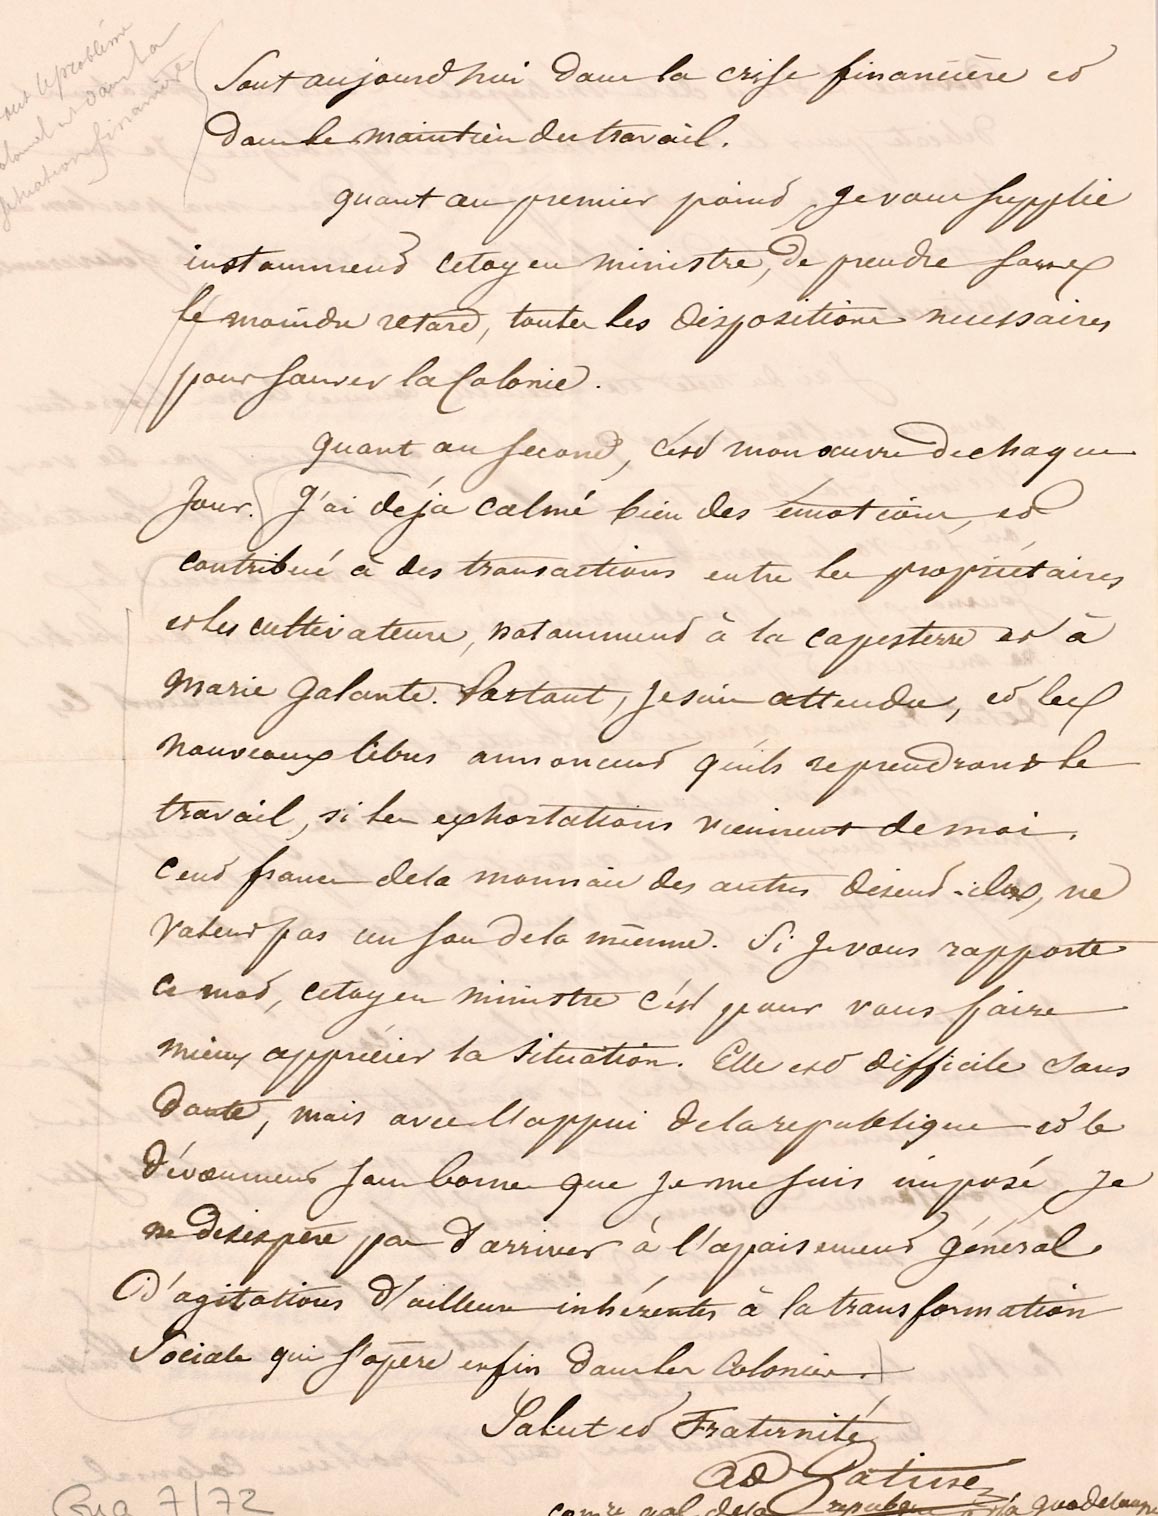 tout le problème
colonial est dans la
situation financière
Sont aujourd'hui dans la crise financière et
dans le maintien du travail.
quant au premier point, Je vous supplie
instamment citoyen ministre, de prendre sans
le moindre retard, toutes les dispositions necessaires
pour sauver la Colonie.
quant au second, c'est mon œuvre de chaque
Jour. J'ai déja calmé bien des émotions, et
contribué à des transactions entre les propriétaires
et les cultivateurs, notamment à la capesterre et à
Marie Galante. Partout, Je suis attendu, et les
nouveaux libres annoncent qu'ils reprendront le
travail, si les exhortations viennent de moi.
Cent francs de la monnaie des autres disent-ils, ne
valent pas un sou de la mienne. Si Je vous rapporte
ce mot, citoyen ministre c'est pour vous faire
mieux apprécier la situation. Elle est difficile sans
doute, mais avec l'appui de la republique et le
dévoument sans borne que Je me suis imposé Je
ne desespère pas d'arriver à l'apaisement général
D'agitations d'ailleurs inhérentes à la transformation
Sociale qui s'opère enfin dans les Colonies.
Salut et Fraternité
Ad Gatine
comre gal de la republique à la guadeloupe
Gua 7/72